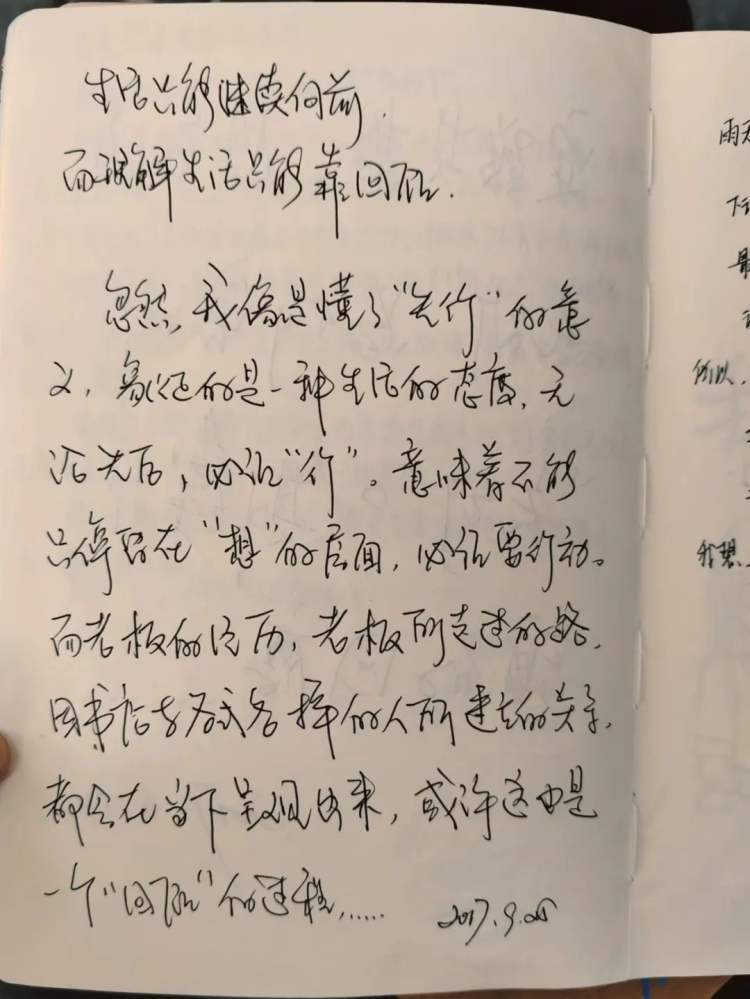 生活只能继续向前,
而理解生活只能靠回顾.
忽然,我像是懂了“先行”的意
义,象征的是一种生活的态度,无
论先后,必须“行”。意味着不能
只停留在“想”的层面,必须要行动。
而老板的经历,老板所走过的路,
因书店与各式各样的人所建立的关系,
都会在当下呈现出来,或许这也是
一个“回顾”的过程......
2017.9.25
雨天
下
最
所以,
我想